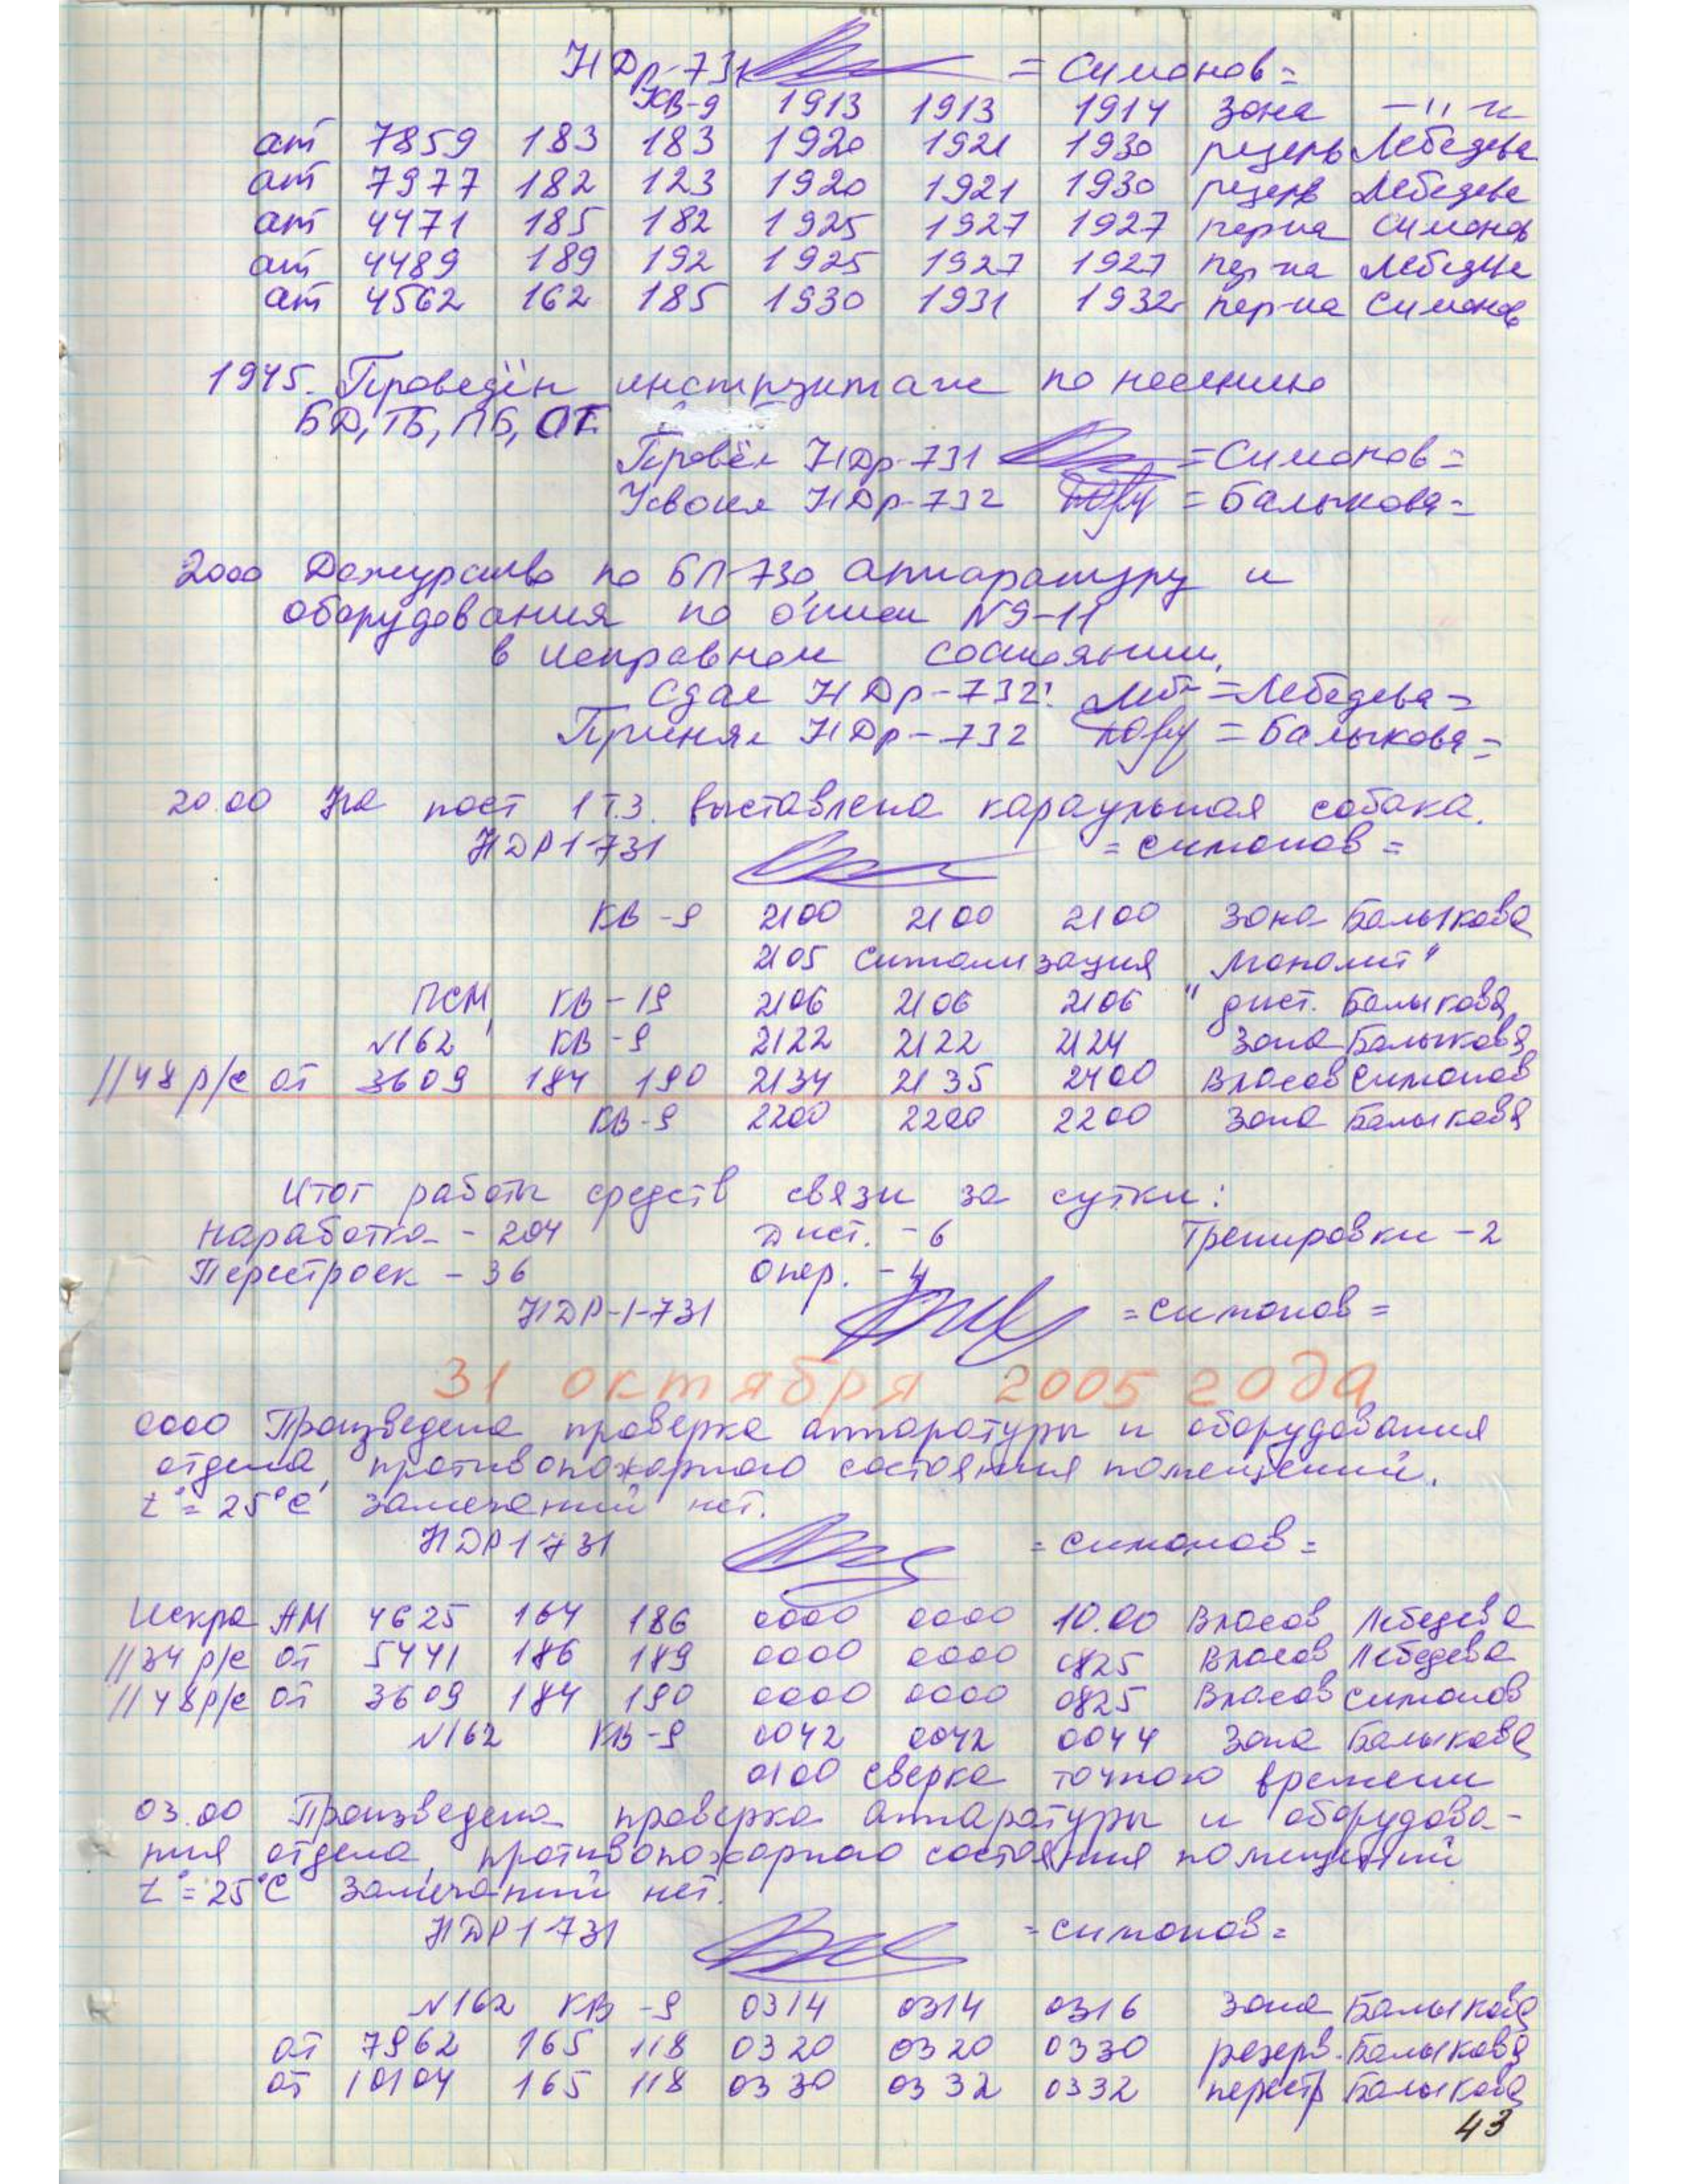 НДр-731 = Симонов =
КВ-9 1913 1913 1914 зона -"-
ат 7859 183 183 1920 1921 1930 резерв Лебедева
ат 7977 182 123 1920 1921 1930 резерв Лебедева
ат 4471 185 182 1925 1927 1927 пер-ка Симонов
ат 4489 189 192 1925 1927 1927 пер-ка Лебедева
ат 4562 162 185 1930 1931 1932 пер-ка Симонов
1945. Проведён инструктаж по несению
БД, ТБ, ПБ, ОТ.
Провёл НДр-731 = Симонов =
Усвоил НДр-732 = Балыкова =
2000 Дежурство по БП-730, аппаратуру и
оборудования по описи №9-11
в исправном состоянии,
Сдал НДр-732: = Лебедева =
Принял НДр-732 = Балыкова =
20.00 На пост 1 Т.З. выставлена караульная собака.
НДР1-731 = Симонов =
КВ-9 2100 2100 2100 Зона Балыкова
2105 Сигнализация "Монолит"
ПСМ, КВ-19 2106 2106 2106 " дист. Балыкова
№162 КВ-9 2122 2122 2124 Зона Балыкова
1148 р/с от 3609 184 190 2134 2135 2400 Власов Симонов
КВ-9 2200 2200 2200 Зона Балыкова
Итог работы средств связи за сутки:
Наработка - 204 Дист. - 6 Тренировки - 2
Перестроек - 36 Опер. - 4
НДР-1-731 = Симонов =
31 октября 2005 года
0000 Произведена проверка аппаратуры и оборудования
отдела, противопожарного состояния помещений.
t°= 25°С замечаний нет.
НДР1 731 = Симонов =
Искра АМ 4625 164 186 0000 0000 10.00 Власов Лебедева
1134 р/с от 5441 186 189 0000 0000 0825 Власов Лебедева
1148 р/с от 3609 184 190 0000 0000 0825 Власов Симонов
№162 КВ-9 0042 0042 0044 Зона Балыкова
0100 сверка точного времени
03.00 Произведена проверка аппаратуры и оборудова-
ния отдела, противопожарного состояния помещений
t°= 25°С замечаний нет.
НДР1 731 = Симонов =
№162 КВ-9 0314 0314 0316 Зона Балыкова
от 7962 165 118 0320 0320 0330 резерв. Балыкова
от 10104 165 118 0330 0332 0332 перестр Балыкова
43